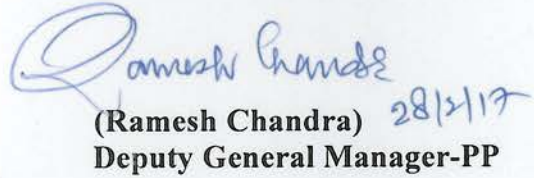 Ramesh Chandra
28/2/17
(Ramesh Chandra)
Deputy General Manager-PP